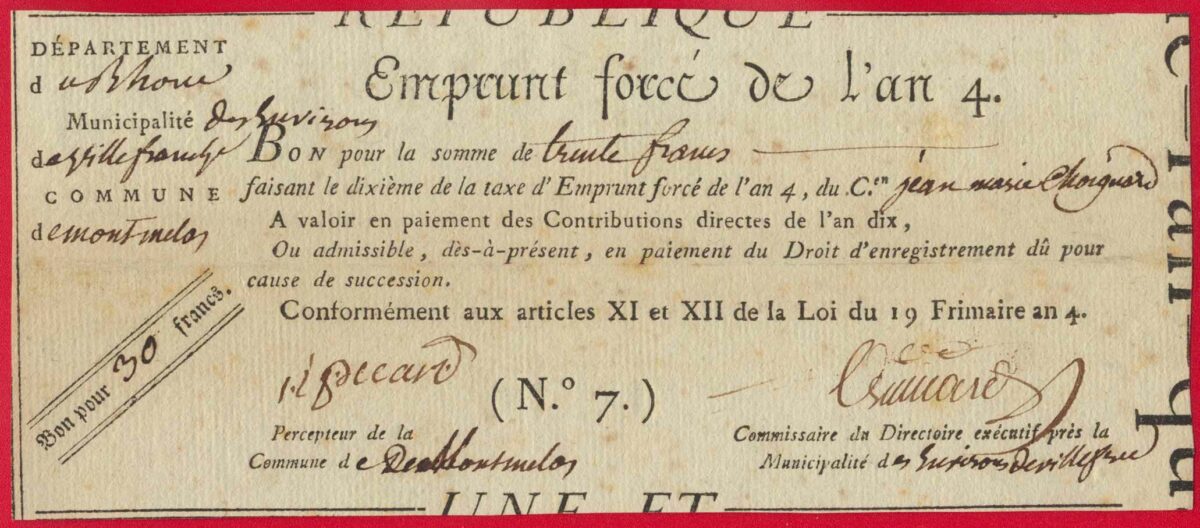 RÉPUBLIQUE
DÉPARTEMENT
du Rhone
Municipalité des Environs
de Villefranche
COMMUNE
de montmelas
Emprunt forcé de l'an 4.
BON pour la somme de trente francs
faisant le dixième de la taxe d'Emprunt forcé de l'an 4, du C.en jean marie
A valoir en paiement des Contributions directes de l'an dix,
Ou admissible, dès-à-présent, en paiement du Droit d'enregistrement dû pour
cause de succession.
Conformément aux articles XI et XII de la Loi du 19 Frimaire an 4.
Bon pour 30 francs.
(N.° 7.)
Percepteur de la
Commune de Montmelas
Commissaire du Directoire exécutif près la
Municipalité des Environs de villefranche
UNE ET